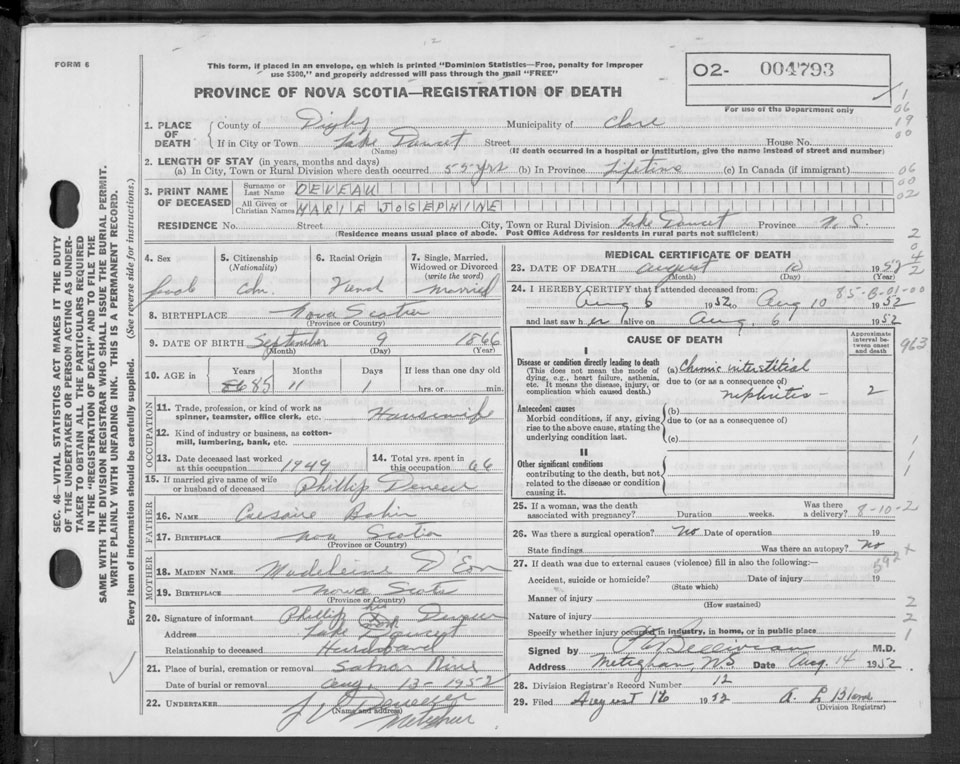 FORM 6
This form, if placed in an envelope, on which is printed "Dominion Statistics—Free, penalty for improper
use $300," and properly addressed will pass through the mail "FREE"
PROVINCE OF NOVA SCOTIA—REGISTRATION OF DEATH
02- 004793
For use of the Department only
SEC. 46—VITAL STATISTICS ACT MAKES IT THE DUTY
OF THE UNDERTAKER OR PERSON ACTING AS UNDER-
TAKER TO OBTAIN ALL THE PARTICULARS REQUIRED
IN THE "REGISTRATION OF DEATH" AND TO FILE THE
SAME WITH THE DIVISION REGISTRAR WHO SHALL ISSUE THE BURIAL PERMIT.
WRITE PLAINLY WITH UNFADING INK. THIS IS A PERMANENT RECORD.
Every item of information should be carefully supplied. (See reverse side for instructions.)
1. PLACE OF DEATH
County of Digby Municipality of Clare
If in City or Town Lake Doucet Street House No.
(Name) (If death occurred in a hospital or institution, give the name instead of street and number)
2. LENGTH OF STAY (in years, months and days)
(a) In City, Town or Rural Division where death occurred 55 yrs (b) In Province Lifetime (c) In Canada (if immigrant)
3. PRINT NAME OF DECEASED
Surname or Last Name DEVEAU
All Given or Christian Names MARIE JOSEPHINE
RESIDENCE No. Street City, Town or Rural Division Lake Doucet Province N. S.
(Residence means usual place of abode. Post Office Address for residents in rural parts not sufficient)
4. Sex
5. Citizenship (Nationality)
6. Racial Origin
7. Single, Married, Widowed or Divorced (write the word) Married
8. BIRTHPLACE Nova Scotia
(Province or Country)
9. DATE OF BIRTH September 9 1866
(Month) (Day) (Year)
10. AGE in Years 86 85 Months 11 Days 1 If less than one day old hrs. or min.
OCCUPATION
11. Trade, profession, or kind of work as spinner, teamster, office clerk, etc. Housewife
12. Kind of industry or business, as cotton-mill, lumbering, bank, etc.
13. Date deceased last worked at this occupation 1949
14. Total yrs. spent in this occupation 66
15. If married give name of wife or husband of deceased Phillip Deveau
FATHER
16. NAME Caesaire
17. BIRTHPLACE Nova Scotia
(Province or Country)
MOTHER
18. MAIDEN NAME Madeleine D'Eon
19. BIRTHPLACE Nova Scotia
(Province or Country)
20. Signature of informant Phillip his X mark Deveau
Address Lake Doucet
Relationship to deceased Husband
21. Place of burial, cremation or removal
Date of burial or removal Aug. 13 - 1952
22. UNDERTAKER
(Name and address)
MEDICAL CERTIFICATE OF DEATH
23. DATE OF DEATH August 10 1952
(Month) (Day) (Year)
24. I HEREBY CERTIFY that I attended deceased from:
Aug 6 1952 to Aug 10 1952
85-8-01-00
and last saw her alive on Aug. 6 1952
CAUSE OF DEATH
Approximate interval between onset and death
I
Disease or condition directly leading to death
(This does not mean the mode of dying, e.g., heart failure, asthenia, etc. It means the disease, injury, or complication which caused death.)
(a) Chronic interstitial
due to (or as a consequence of)
nephritis - 2
Antecedent causes
Morbid conditions, if any, giving rise to the above cause, stating the underlying condition last.
(b)
due to (or as a consequence of)
(c)
II
Other significant conditions
contributing to the death, but not related to the disease or condition causing it.
25. If a woman, was the death associated with pregnancy? Duration weeks. Was there a delivery? 8-10-2
26. Was there a surgical operation? No Date of operation 19
State findings Was there an autopsy? No
592 x
27. If death was due to external causes (violence) fill in also the following:—
Accident, suicide or homicide? Date of injury 19
(State which)
Manner of injury
(How sustained)
Nature of injury
Specify whether injury occurred in industry, in home, or in public place
Signed by Belliveau M.D.
Address Meteghan, N.S. Date Aug. 14 1952
28. Division Registrar's Record Number 12
29. Filed August 16 1952
(Division Registrar)
1
06
19
00
06
00
02
2
0
4
2
963
1
1
1
2
2
1